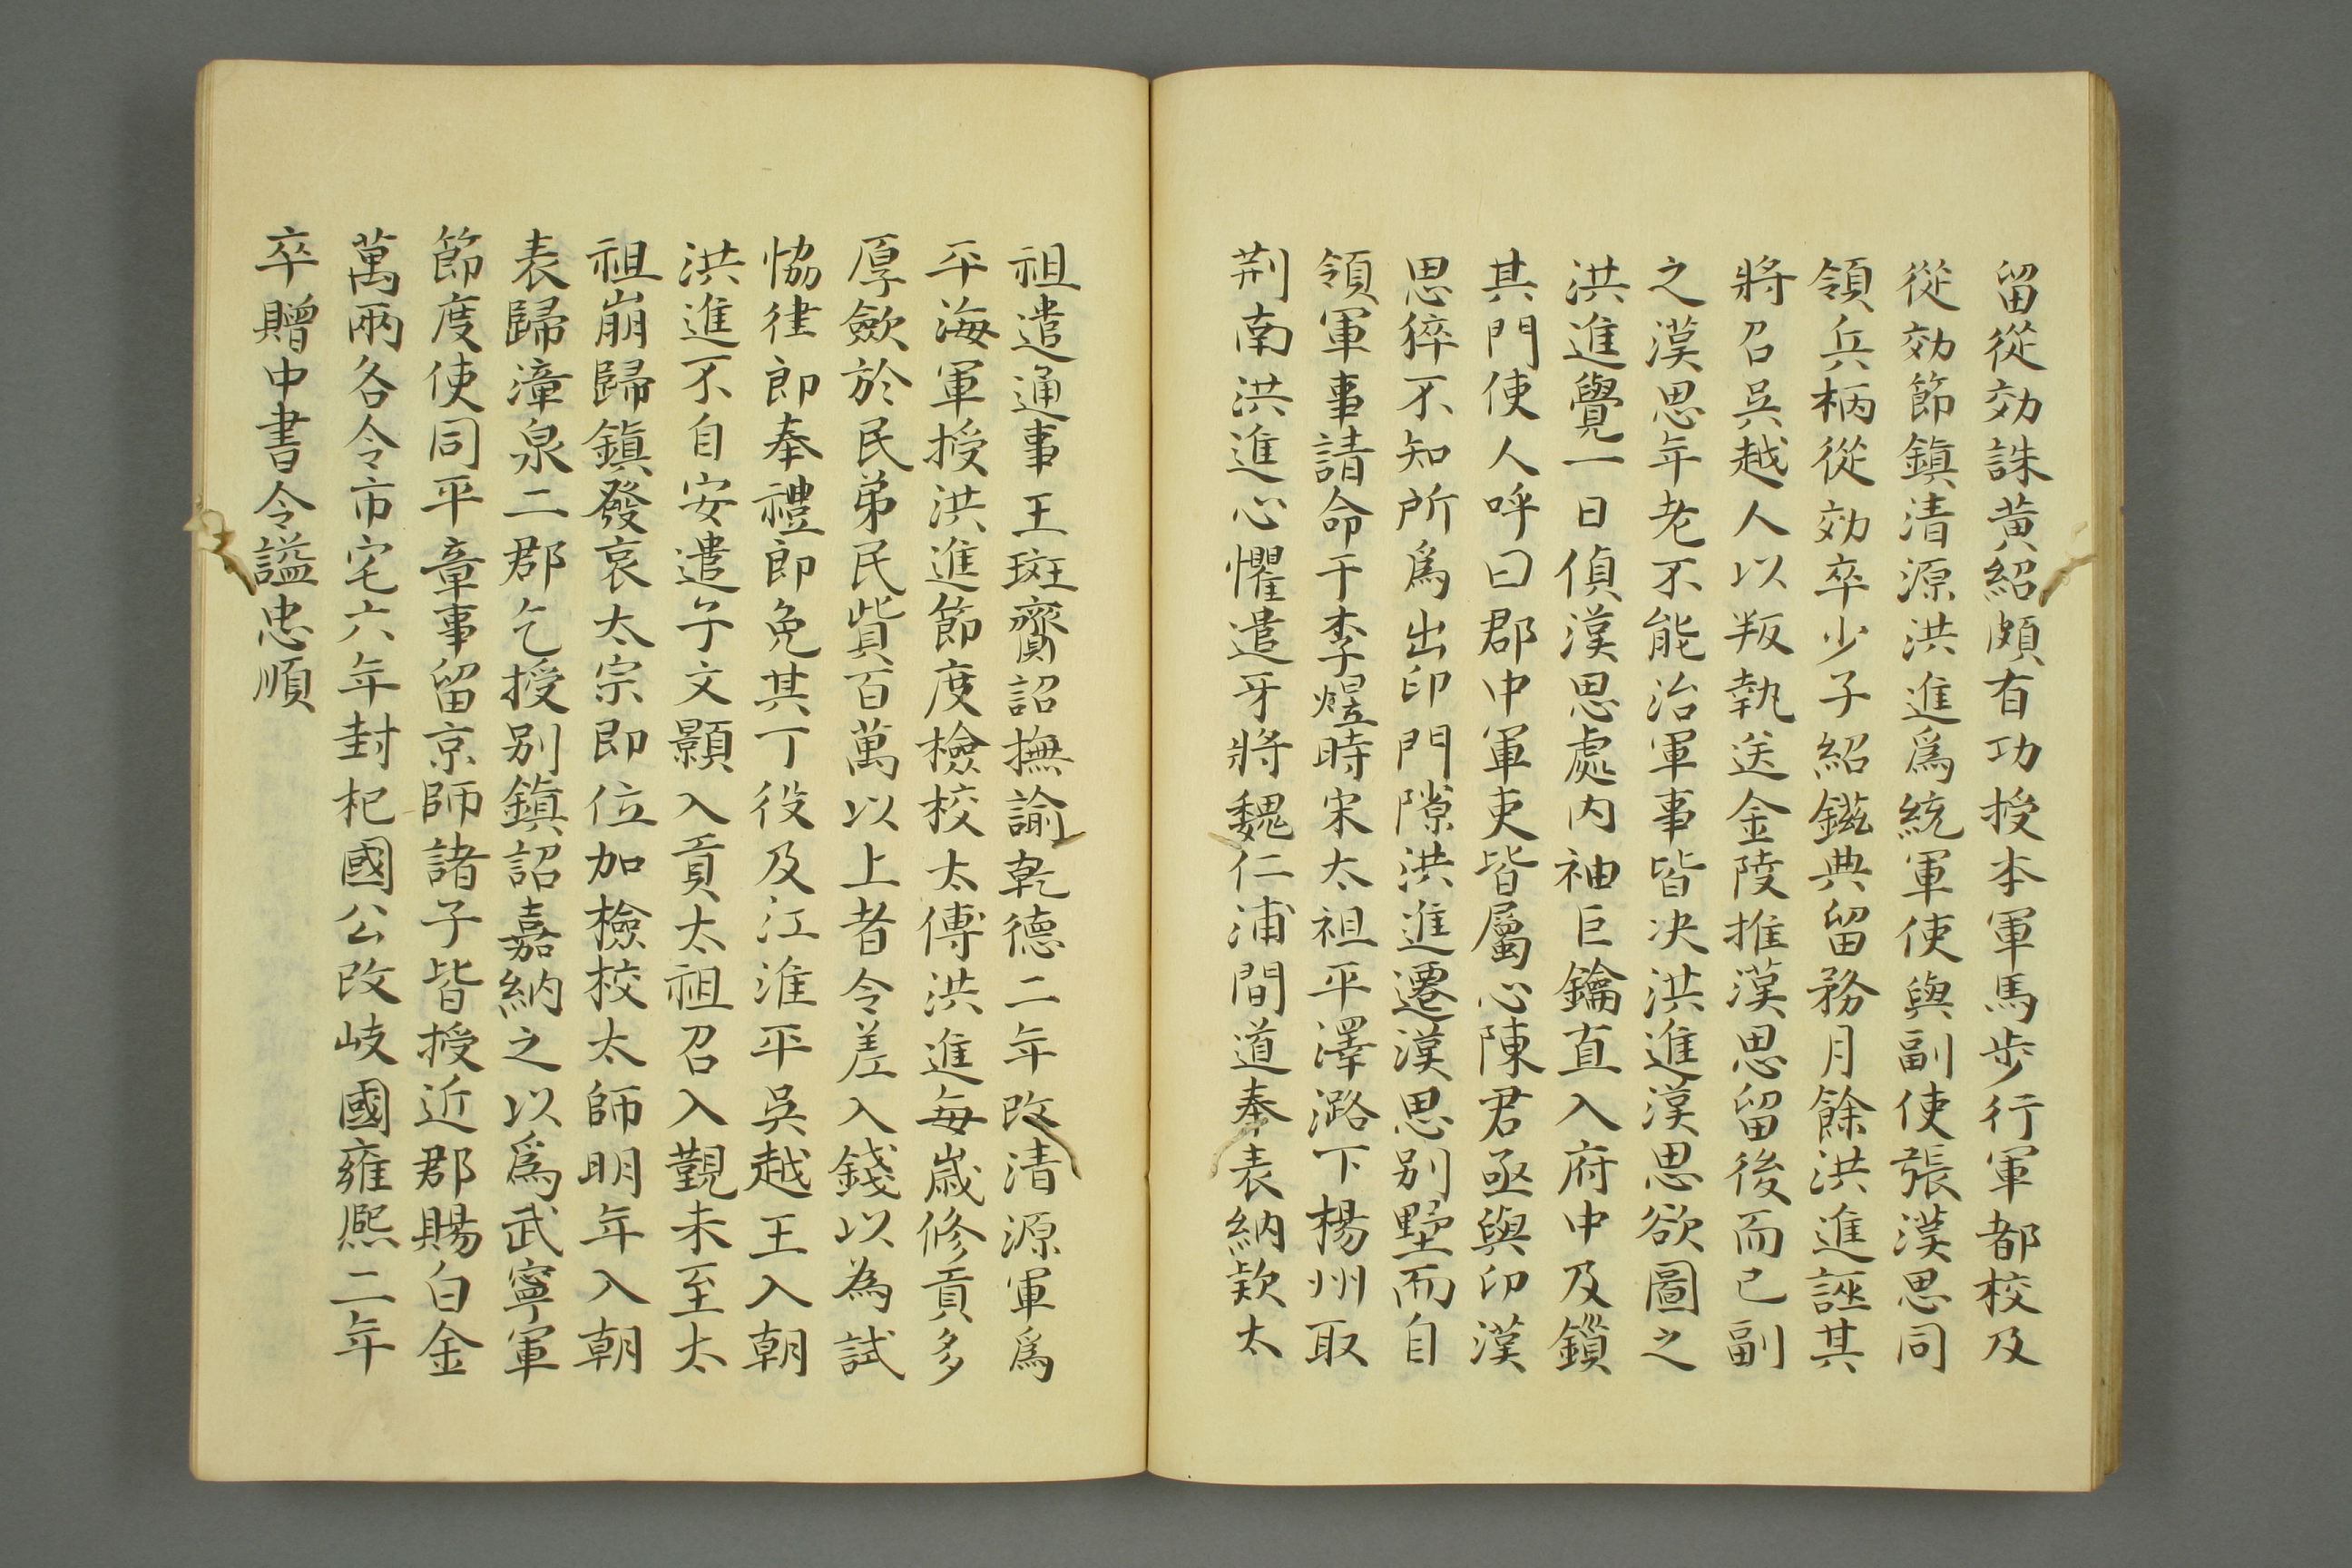 留從効誅黄紹頗有功授本軍馬步行軍都校及
從効節鎮清源洪進爲統軍使與副使張漢思同
領兵柄從効卒少子紹鎡典留務月餘洪進誣其
將召吳越人以叛執送金陵推漢思留後而己副
之漢思年老不能治軍事皆决洪進漢思欲圖之
洪進覺一日偵漢思處内袖巨鑰直入府中及鎻
其門使人呼曰郡中軍吏皆屬心陳君亟與印漢
思猝不知所爲出印門隙洪進遷漢思别墅而自
領軍事請命于李煜時宋太祖平澤潞下楊州取
荆南洪進心懼遣牙將魏仁浦間道奉表納欵太
祖遣通事王班齎詔撫諭乾德二年改清源軍爲
平海軍授洪進節度檢校太傅洪進每歲修貢多
厚斂於民弟民貲百萬以上者令差入錢以為試
恊律郎奉禮郎免其丁役及江淮平吳越王入朝
洪進不自安遣子文顥入貢太祖召入覲未至太
祖崩歸鎮發哀太宗即位加檢校太師明年入朝
表歸漳泉二郡乞授别鎮詔嘉納之以爲武寧軍
節度使同平章事留京師諸子皆授近郡賜白金
萬兩各令市宅六年封杞國公改岐國雍熙二年
卒贈中書令謚忠順